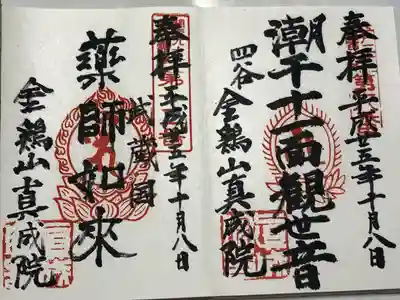 奉拝 平成廿五年十月八日
潮干十一面観世音
四谷 金鶏山真成院
奉拝 平成廿五年十月八日
薬師如来
金鶏山真成院